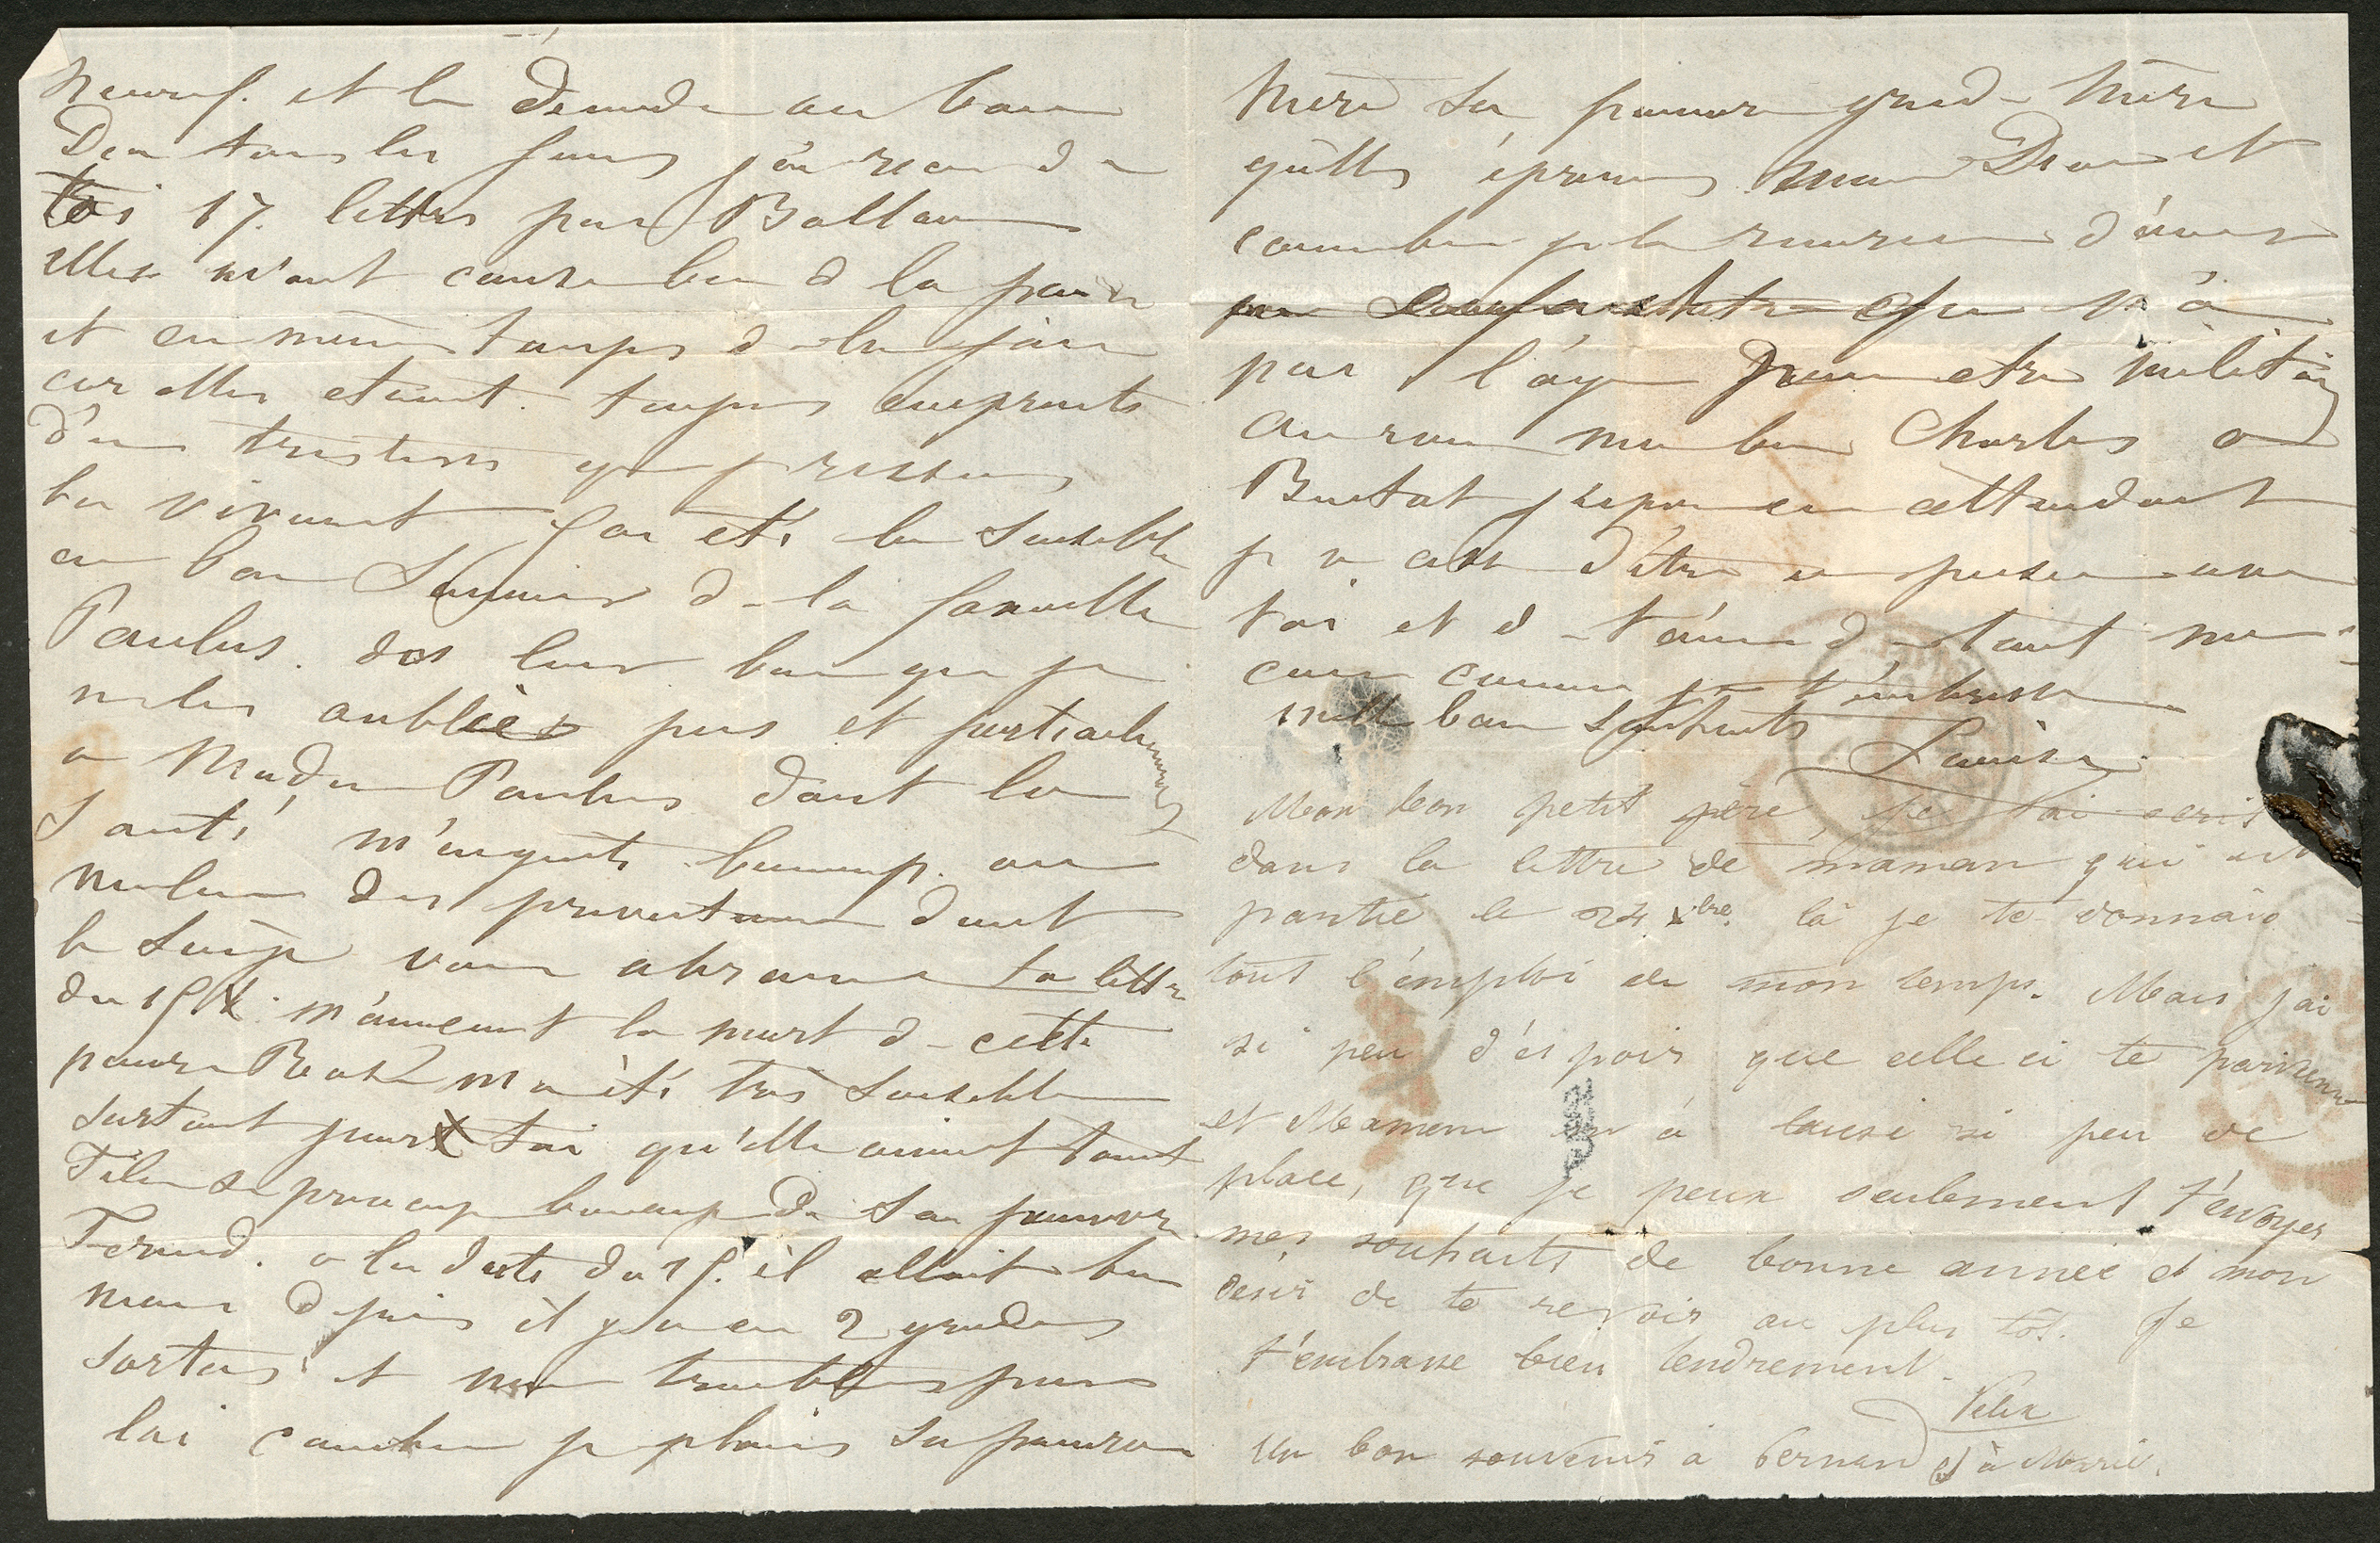 neuf. et le demande au bon
Dieu tous les jours j'ai recu de
toi 17. lettres par Ballon
elles m'ont causé bien de la peine
et en même temps de la joie
car elles etaient toujours empreints
d'une tristesse que je ressens
bien vivement j'ai eté bien sensible
au bon Souvenir de la famille
Paulus. dis leur bien que je
ne les oublies pas et particulierement
a Madame Paulus dont la
Santé m'inquiete beaucoup. au
milieu des privations dont
le Siège vous abreuve ta lettre
du 15 m'annoncant la mort de cette
pauvre m'a été très sensible
surtout pour toi qu'elle aimait tant
Félix se preoccupe beaucoup de son pauvre
Fernand. a la date du 15. il allait bien
mais depuis il y a eu 2 grandes
sorties et nous tremblons pour
lui combien je plains sa pauvre
Mère sa pauvre grand-Mère
qu'elles épreuves mon Dieu et
combien je le remercie d'avoir
un que n'a
pas l'âge pour etre militaire
au revoir mon bon Charles a
Bientot j'espère en attendant
je ne cesse d'être en pensée avec
toi et de t'aimer de tout mon
coeur comme je t'embrasse
mille bons souhaits
Louise
Mon bon petit père, je t'ai ecrit
dans la lettre de maman qui est
partie le 24 xbre. là je te donnais
tout l'emploi de mon temps. Mais j'ai
si peu d'espoir que celle ci te parvienne
et Maman m'a laissé si peu de
place, que je peux seulement t'envoyer
mes souhaits de bonne année et mon
desir de te revoir au plus tôt. Je
t'embrasse bien tendrement.
Felix
Un bon souvenir à Fernand et à Marie.